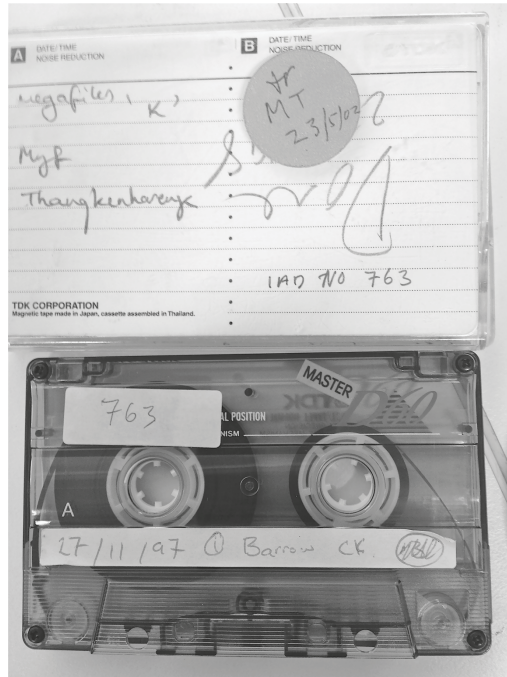 A DATE/TIME
NOISE REDUCTION
B DATE/TIME
NOISE REDUCTION
megafiles, 'K'
tr
MT
23/5/02
Myf
Thangkenharenge
IAD NO 763
TDK CORPORATION
Magnetic tape made in Japan, cassette assembled in Thailand.
MASTER
763
AL POSITION
NISM
A
27/11/97 ① Barrow CK.